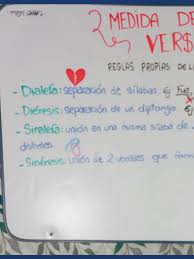 MEDIDA DE
VERS
REGLAS PROPIAS DE L
- Dialefa: separación de sílabas ej Fie
- Diéresis: separación de un diptongo Ej
- Sinalefa: unión en una misma sílaba de
distintas
- Sinéresis: unión de 2 vocales que form